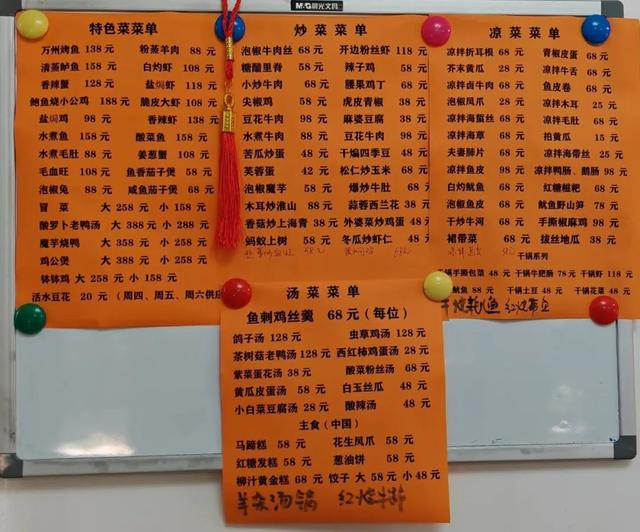 M&G 晨光文具
特色菜菜单
万州烤鱼 138 元 粉蒸羊肉 88 元
清蒸鲈鱼 158 元 白灼虾 108 元
香辣蟹 128 元 盐焗虾 118 元
鲍鱼烧小公鸡 188 元 脆皮大虾 108 元
盐焗鸡 98 元 香辣虾 138 元
水煮鱼 158 元 酸菜鱼 158 元
水煮毛肚 88 元 姜葱蟹 108 元
毛血旺 108 元 鱼香茄子煲 58 元
泡椒兔 88 元 咸鱼茄子煲 68 元
冒菜 大 258 元 小 158 元
酸萝卜老鸭汤 大 388 元 小 288 元
魔芋烧鸭 大 358 元 小 258 元
鸡公煲 大 388 元 小 258 元
钵钵鸡 大 258 元 小 158 元
活水豆花 20 元 (周四、周五、周六供应
炒菜菜单
泡椒牛肉丝 68 元 开边粉丝虾 118 元
糖醋里脊 58 元 辣子鸡 58 元
小炒牛肉 68 元 腰果鸡丁 68 元
尖椒鸡 58 元 虎皮青椒 38 元
豆花牛肉 98 元 麻婆豆腐 38 元
水煮牛肉 88 元 豆花牛肉 98 元
苦瓜炒蛋 48 元 干煸四季豆 48 元
芙蓉蛋 42 元 松仁炒玉米 68 元
泡椒魔芋 58 元 爆炒牛肚 68 元
木耳炒淮山 88 元 蒜蓉西兰花 38 元
香菇炒上海青 38 元 外婆菜炒鸡蛋 48 元
蚂蚁上树 58 元 冬瓜炒虾仁 48 元
凉菜菜单
凉拌折耳根 68 元 青椒皮蛋 68 元
芥末黄瓜 28 元 凉拌牛舌 68 元
凉拌卤牛肉 68 元 鱼皮卷 68 元
泡椒凤爪 28 元 凉拌木耳 25 元
凉拌海蜇丝 68 元 凉拌毛肚 68 元
凉拌海草 68 元 拍黄瓜 15 元
夫妻肺片 68 元 凉拌海带丝 25 元
凉拌鱼皮 98 元 凉拌鸭肠、鹅肠 98 元
白灼鱿鱼 68 元 红糖糍粑 68 元
泡椒鱼皮 98 元 鱿鱼野山笋 78 元
干炒牛河 68 元 手撕椒麻鸡 98 元
裙带菜 68 元 拔丝地瓜 38 元
干锅系列
干锅手撕包菜 48 元 干锅牛肥肠 78 元 干锅虾 118 元
鱿鱼 88 元 干锅土豆 48 元 干锅花菜 48 元
汤菜菜单
鱼刺鸡丝羹 68 元(每位)
鸽子汤 128 元 虫草鸡汤 128 元
茶树菇老鸭汤 128 元 西红柿鸡蛋汤 28 元
紫菜蛋花汤 38 元 酸菜粉丝汤 68 元
黄瓜皮蛋汤 58 元 白玉丝瓜 48 元
小白菜豆腐汤 28 元 酸辣汤 48 元
主食(中国)
马蹄糕 58 元 花生凤爪 58 元
红糖发糕 58 元 葱油饼 58 元
椰汁黄金糕 68 元 饺子 大 58 元 小 48 元
羊杂汤锅 红烧牛腩